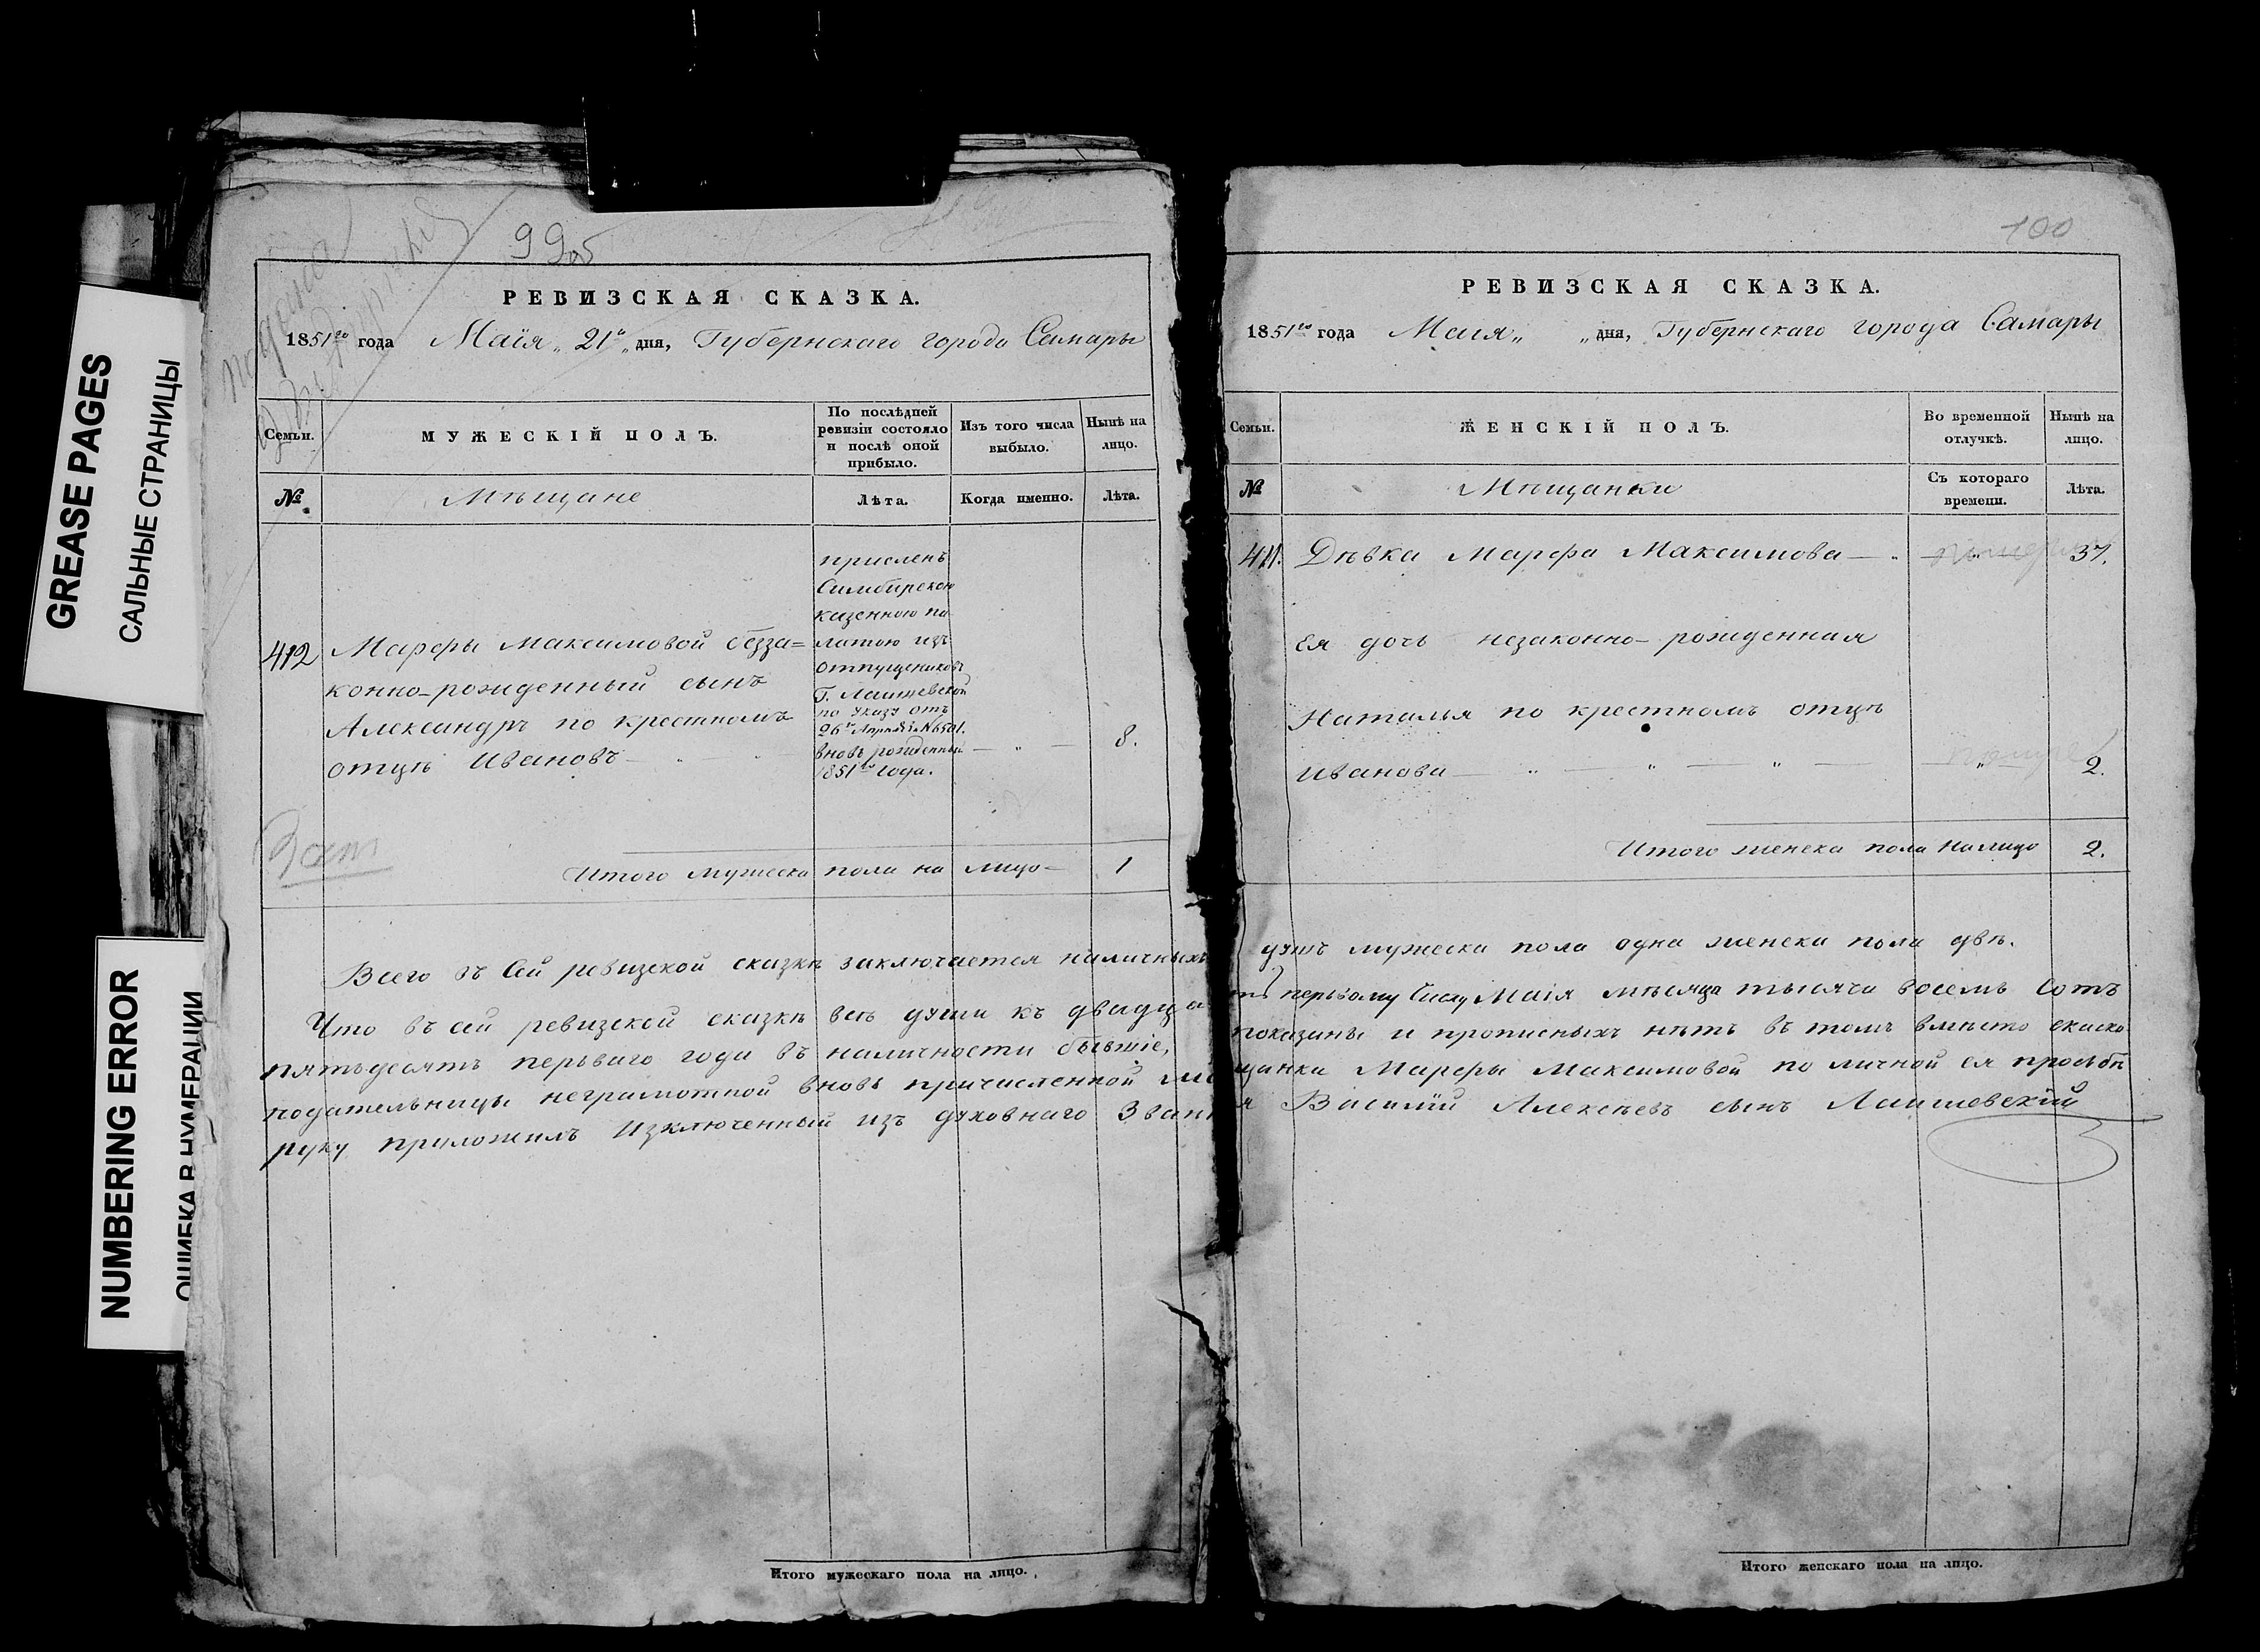 GREASE PAGES
САЛЬНЫЕ СТРАНИЦЫ
NUMBERING ERROR
ОШИБКА В НУМЕРАЦИИ
99об
РЕВИЗСКАЯ СКАЗКА.
1851го года Маія „ 21го „ дня, Губернскаго города Самары
Семьи.
МУЖЕСКІЙ ПОЛЪ.
По послѣдней ревизіи состояло и послѣ оной прибыло.
Изъ того числа выбыло.
Нынѣ на лицо.
№
Мѣщане
Лѣта.
Когда именно.
Лѣта.
присленъ
Симбирскою
казенною па
латою изъ
отпущениковъ
Г. Лаишевской
по указу отъ
26го Апрѣля № 6501.
вновь рожденный
1851го года.
412
Марфы Максимовой безза=
конно-рожденный сынъ
Александръ по крестномъ
отцѣ Ивановъ — „ — „ — „ — 8.
Итого мужеска пола на лицо — 1
Всего въ сей ревизской сказкѣ заключается наличныхъ
Что въ сей ревизской сказкѣ всѣ души къ двадца
пятьдесятъ перьваго года въ наличности бывшіе,
подательницы неграмотной вновь причисленной мѣ
руку приложилъ Изключенный изъ духовнаго Звані
Итого мужескаго пола на лицо.
100
РЕВИЗСКАЯ СКАЗКА.
1851го года Маія „ „ дня, Губернскаго города Самары
Семьи.
ЖЕНСКІЙ ПОЛЪ.
Во временной отлучкѣ.
Нынѣ на лицо.
№
Мѣщанки
Съ котораго времени.
Лѣта.
411. Дѣвка Марфа Максимова — „ — „ 37.
Ея дочь незаконно-рожденная
Наталья по крестномъ отцѣ
Иванова — „ — „ — „ — „ 2.
Итого женска пола налицо 2.
душъ мужеска пола одна женска пола двѣ.
ть перьвому Числу Маія мѣсяца тысяча восемь сотъ
показаны и прописныхъ нѣтъ въ томъ вмѣсто скаско
щанки Марфы Максимовой по личной ея прозьбѣ
я Василій Алексѣевъ сынъ Лаишевскій
Итого женскаго пола на лицо.